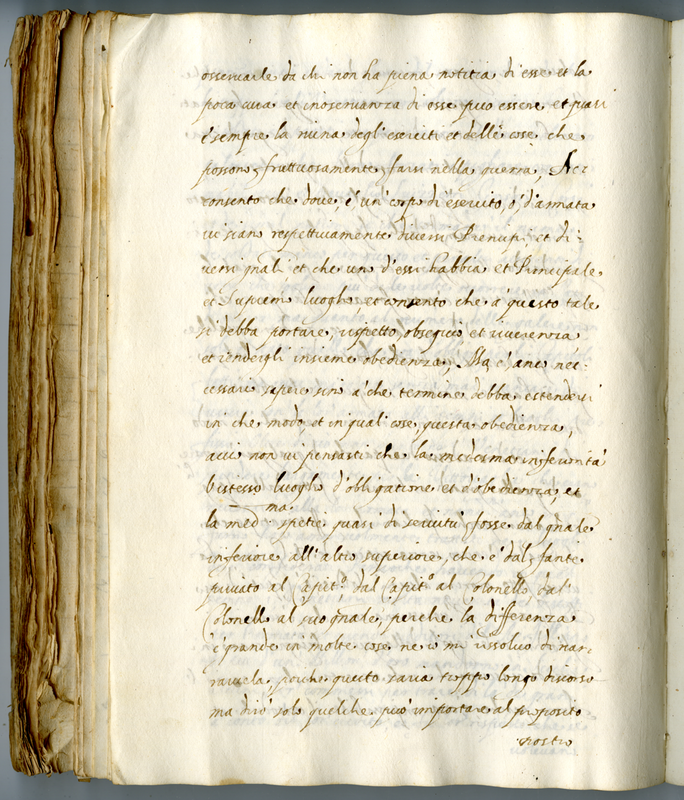 osservarle da chi non ha piena notitia di esse et la
poca cura et inoservanza di esse puo essere et quasi
è sempre la ruina degl'eserciti et delle cose che
possono fruttuosamente farsi nella guerra, Acc
consento che dove, é un corpo di esercito, ó, d'armata
vi siano respettivamente diversi Principi, et di=
versi gnali et che uno d'essi habbia et Principale
et Suprem luogho, et consento che á questo tale
si debba portare, rispetto, obsequio et riverenza
et rendergli insieme obedienza, Ma, é anco nec=
cessario sapere sino á che termine debba estendersi
in che modo, et in quali cose, questa obedienza,
acciò non vi pensasti che la medesma inferiorità
l'istesso luogho d'obligatione et d'obedienza, et
la med.ma spetie quasi di servitù fosse dal gnale
inferiore all'altro superiore, che é dal fante
privato al Capit.o dal Capit.o al Colonello, dal
Colonello al suo gnale, perche la differenza
é grande in molte cose ne io mi rissolvo di nar=
rarvela, perche questo saria troppo longo discorso
ma dirò solo quelche può importare al proposito
nostro